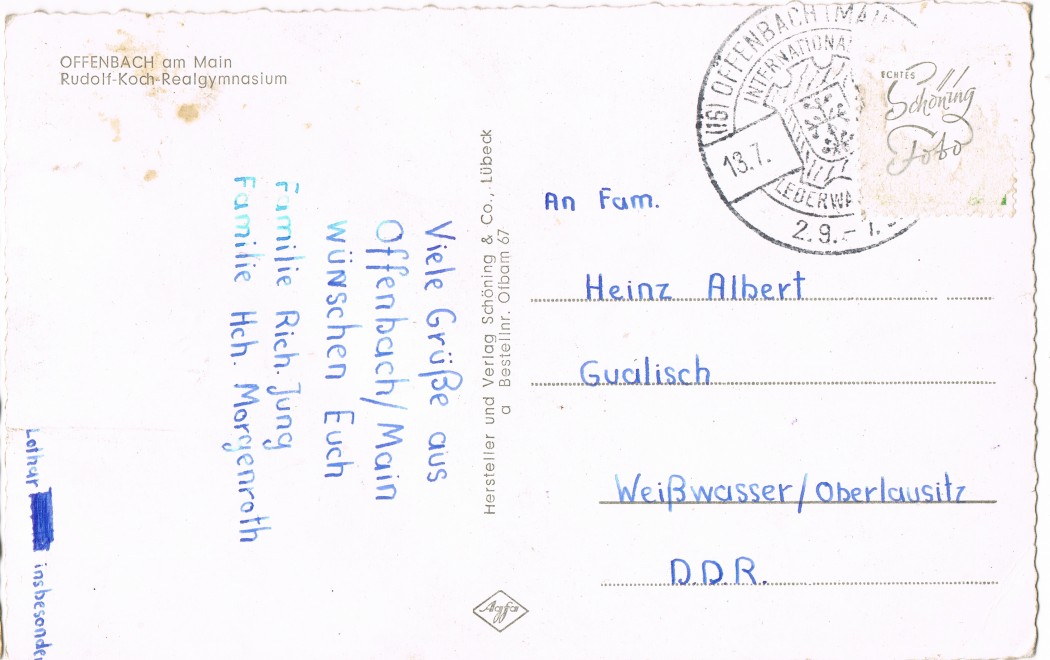 OFFENBACH am Main
Rudolf-Koch-Realgymnasium
Viele Grüße aus
Offenbach/Main
wünschen Euch
Familie Rich. Jung
Familie Hch. Morgenroth
Lothar insbesonder
Hersteller und Verlag Schöning & Co., Lübeck
a Bestellnr. Ofbam 67
Agfa
(16) OFFENBACH (MAIN
INTERNATIONA
13.7.
LEDERWA
2.9.-
ECHTES
Schöning
Foto
An Fam.
Heinz Albert
Gualisch
Weißwasser/Oberlausitz
D.D.R.